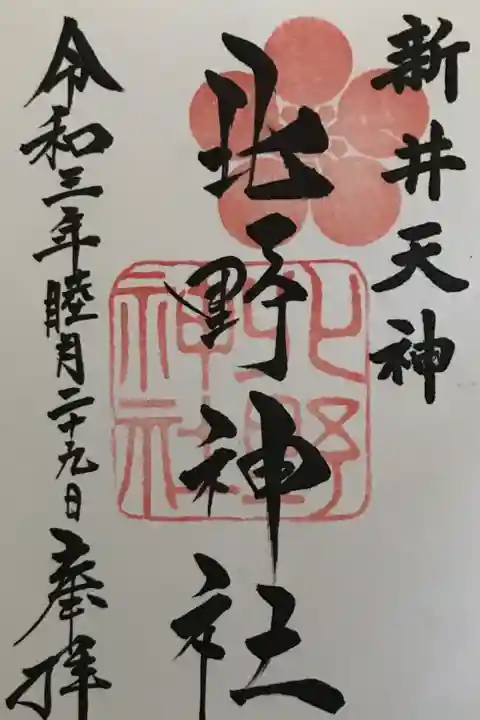 新井天神
北野神社
令和三年睦月二十九日奉拝
北野
神社